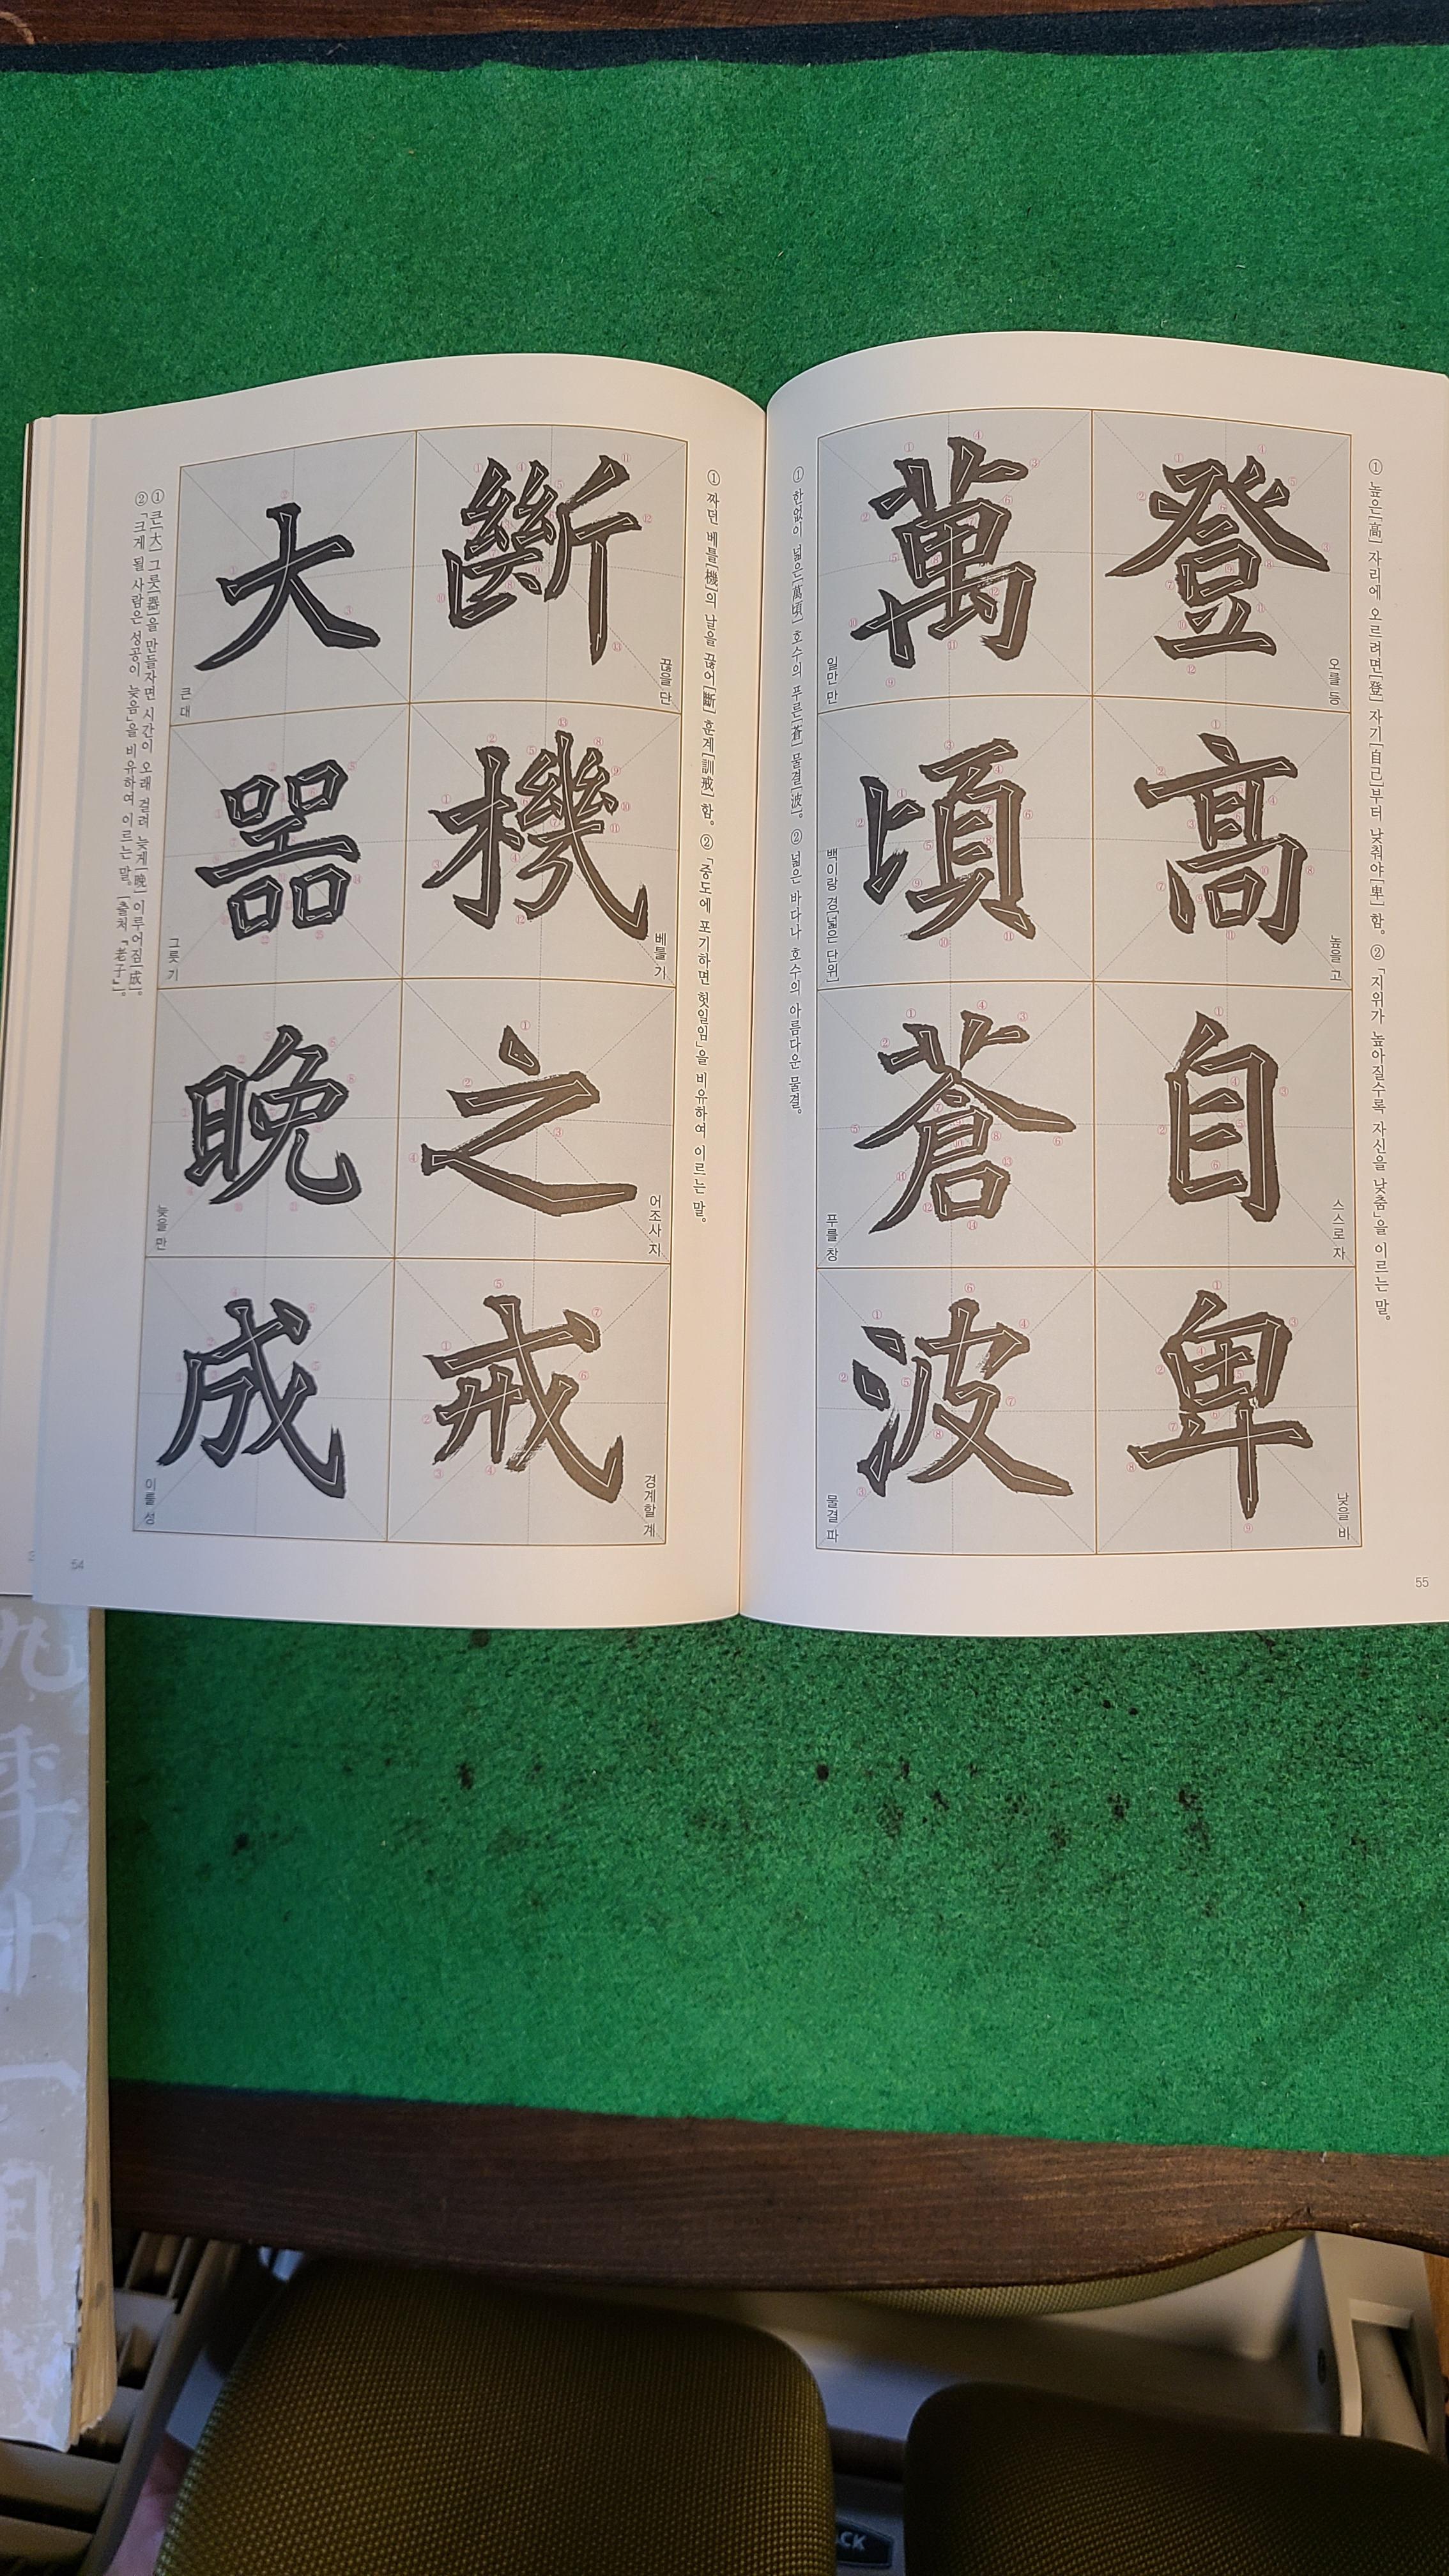 ① 높은[高] 자리에 오르려면[登] 자기[自己]부터 낮춰야[卑] 함. ② 「지위가 높아질수록 자신을 낮춤」을 이르는 말.
登
오를 등
高
높을 고
自
스스로 자
卑
낮을 비
萬
일만 만
頃
백이랑 경[넓은 단위]
蒼
푸를 창
波
물결 파
① 한없이 넓은[萬頃] 호수의 푸른[蒼] 물결[波]. ② 넓은 바다나 호수의 아름다운 물결.
55
① 짜던 베틀[機]의 날을 끊어[斷] 훈계[訓戒]함. ② 「중도에 포기하면 헛일임」을 비유하여 이르는 말.
斷
끊을 단
機
베틀 기
之
어조사 지
戒
경계할 계
大
큰 대
器
그릇 기
晩
늦을 만
成
이룰 성
① 큰[大] 그릇[器]을 만들자면 시간이 오래 걸려 늦게[晩] 이루어짐[成].
② 「크게 될 사람은 성공이 늦음」을 비유하여 이르는 말. [출처 『老子』].
54